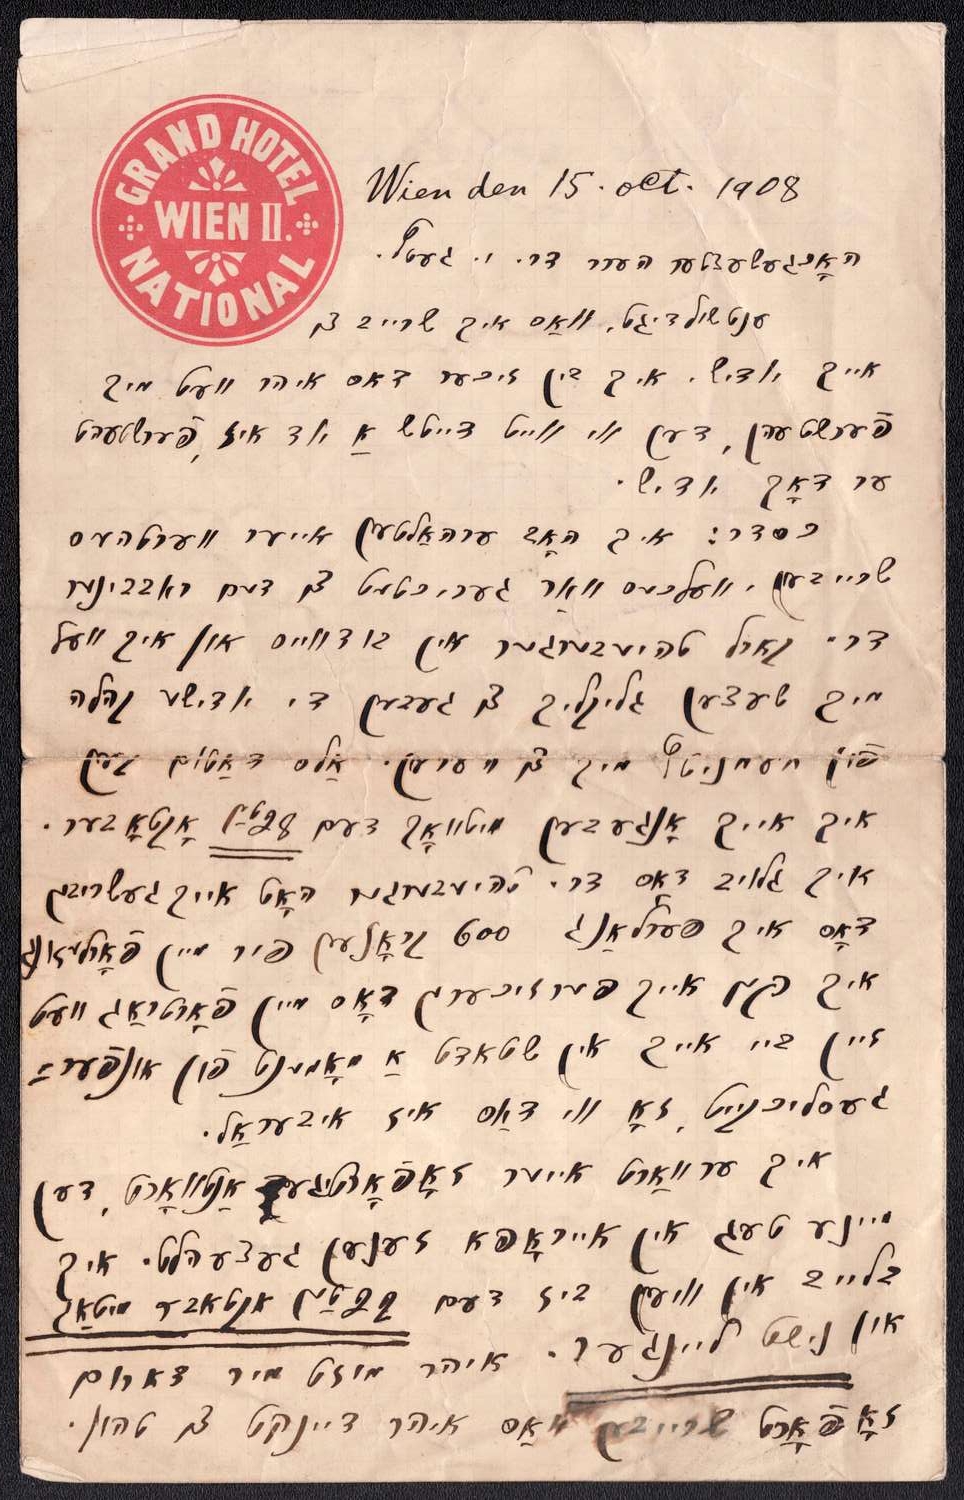 GRAND HOTEL
WIEN II.
NATIONAL
Wien den 15. oct. 1908
האָכגעשעצטער הערר דר. י.
ענטשולדיגט, וואָס איך שרייב צו
אייך יודיש. איך בין זיכער דאס איהר וועט מיך
פֿערשטעהן, דען ווי ווייט דייטש אַ יוד איז, פֿערשטעהט
ער דאָך יודיש.
כסדר: איך האָב ערהאַלטען אייער ווערטהעס
שרייבען, וועלכעס וואַר געריכטעט צו דעם ראבבינער
דר. קארל טהיעבערגער אין בודווייס און איך וועל
מיך שעצען גליקליך צו געבען די יודישע קהלה
פֿון מיך צו הערען. אַלס דאַטום קען
איך אייך אָנגעבען מיטוואָך דעם 28טען אָקטאָבער.
איך גלויב דאָס דר. טהיעבערגער האָט אייך געשריבען
דאָס איך פערלאַנג 600 קראָנען פיר מיין פֿאָרלעזונג
איך קען אייך פערזיכערן דאָס מיין פֿאָרטראַג וועט
זיין ביי אייך אין שטאדט אַ מאָמענט פֿון אונפֿער=
געסליכקייט, זאָ ווי דאַס איז איבעראַל.
איך ערוואַרט אייער זאָפֿאָרטיגע אַנטוואָרט, דען
מיינע טעג אין אייראָפּא זענען געצעהלט. איך
בלייב אין וויען ביז דעם 22טען אקטאבער מיטאַג
און נישט ליינגער. איהר מוזט מיר דארום
זאָפֿאָרט שרייבען וואָס איהר דיינקט צו טהון.